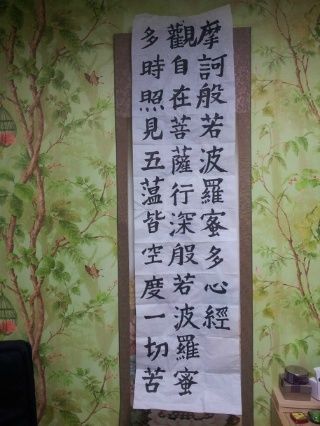 摩訶般若波羅蜜多心經
觀自在菩薩行深般若波羅蜜
多時照見五蕰皆空度一切苦